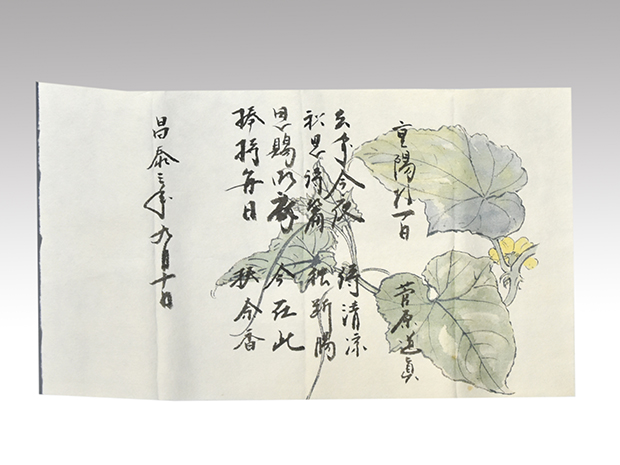 重陽後一日
菅原道眞
去年今夜 侍清凉
秋思詩篇 独断腸
恩賜御衣 今在此
捧持毎日 拝余香
昌泰三年九月十日